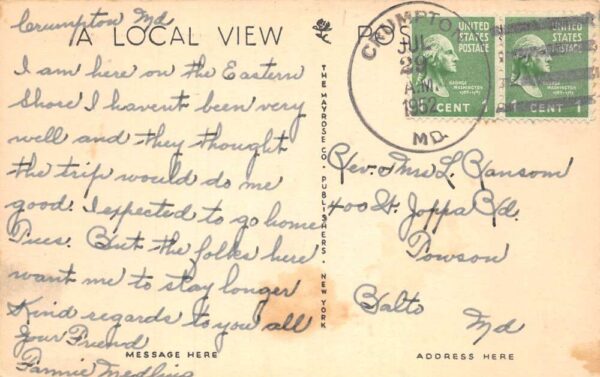 Crumpton Md
A LOCAL VIEW
I am here on the Eastern
Shore I havent been very
well and they thought
the trip would do me
good. I expected to go home
Tues. But the folks here
want me to stay longer
Kind regards to you all
Your Friend
Fannie Medling
MESSAGE HERE
THE MAYROSE CO. PUBLISHERS. NEW YORK
CRUMPTON
JUL
29
A.M.
1952
MD.
UNITED
STATES
POSTAGE
GEORGE
WASHINGTON
CENT 1
UNITED
STATES
POSTAGE
GEORGE
WASHINGTON
1 CENT 1
Rev. & Mrs L. Ransom
400 St. Joppa Rd.
Towson
Balto
Md
ADDRESS HERE